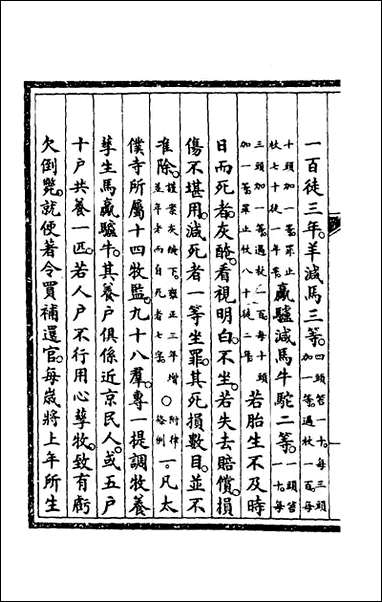 一百徒三年。羊減馬三等。四頭笞一十。每三頭加一等。過杖一百。每
十頭加一等。罪止杖七十徒一年半。驘驢減馬牛駝二等。一頭笞一十。每
三頭加一等。過杖一百。每十頭加一等。罪止杖八十徒二年若胎生不及時
日而死者。灰醃看視明白。不坐。若失去賠償。損
傷不堪用。減死者一等坐罪。其死損數目。並不
准除。謹案灰醃下。雍正三年增並年老而自死者七字○附律條例一。凡太
僕寺所屬十四牧監。九十八羣。專一提調牧養
孳生馬驘驢牛。其養戶俱係近京民人。或五戶
十戶共養一匹。若人戶不行用心孳牧。致有虧
欠倒斃。就便著令買補還官。每歲將上年所生